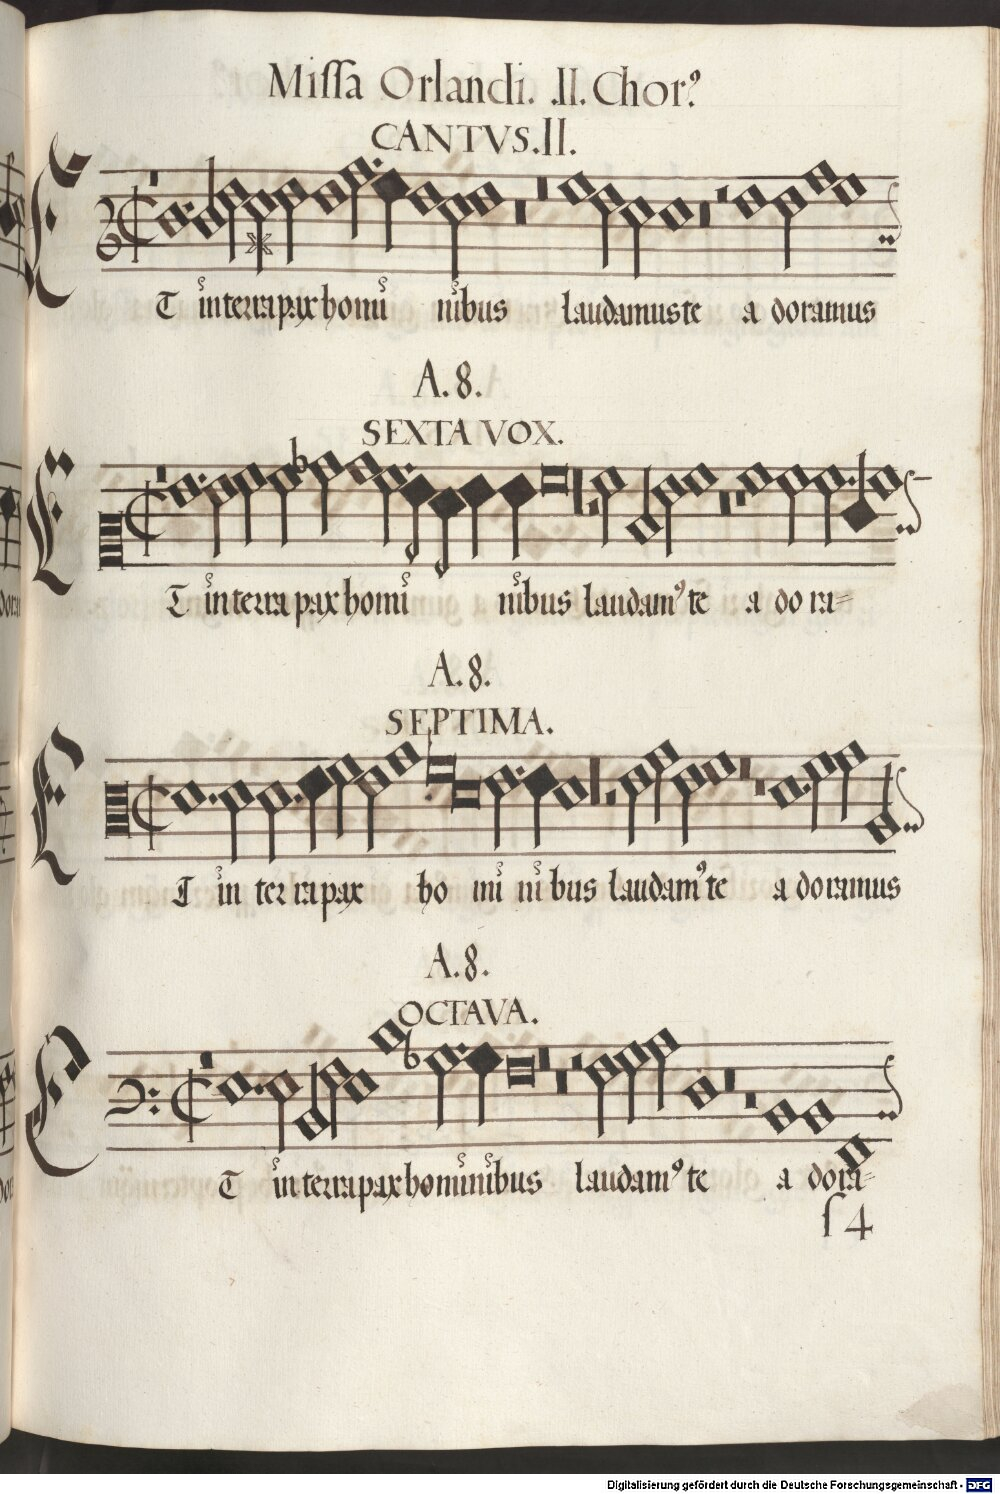 Missa Orlandi. .II. Chorꝰ
CANTVS. II.
ET in terra pax homi nibus laudamus te a doramus
A. 8.
SEXTA VOX.
ET in terra pax homi nibus laudamꝰ te a do ra=
A. 8.
SEPTIMA.
ET in ter ra pax ho mi ni bus laudamꝰ te a doramus
A. 8.
OCTAVA.
ET in terra pax hominibus laudamꝰ te a dora=
ſ 4
Digitalisierung gefördert durch die Deutsche Forschungsgemeinschaft - DFG